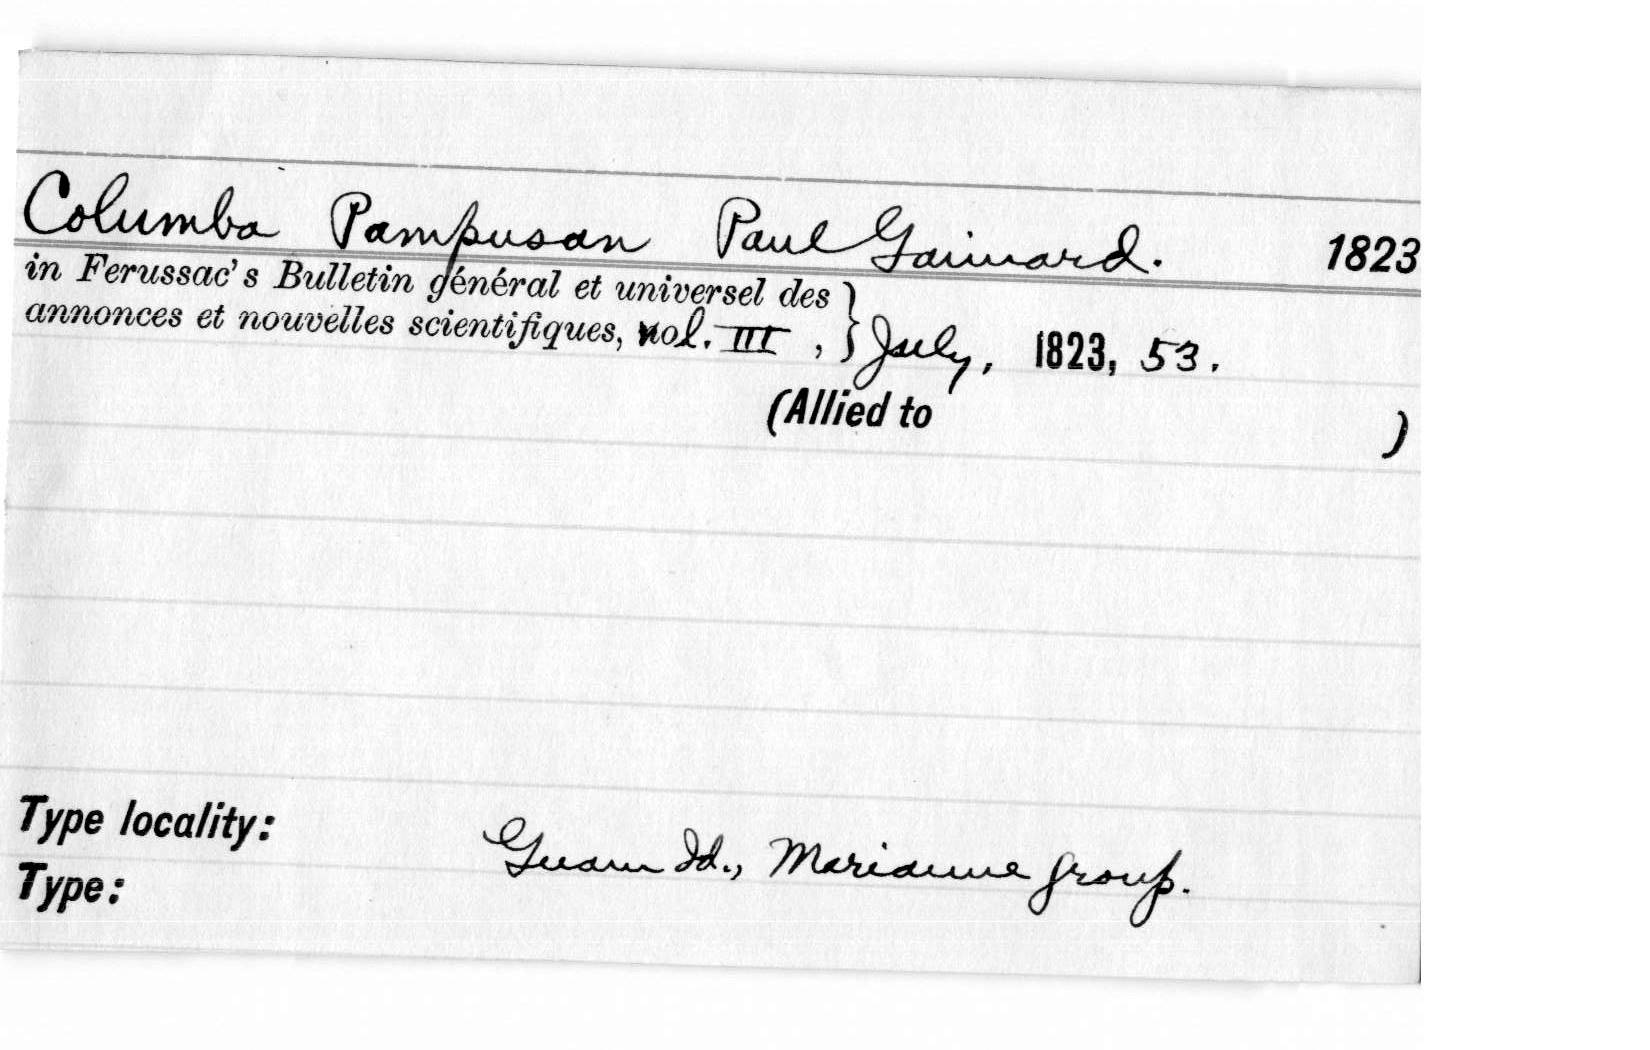 Columba Pampusan Paul Gaimard. 1823
in Ferussac's Bulletin général et universel des
annonces et nouvelles scientifiques, vol. III, } July, 1823, 53.
(Allied to )
Type locality: Guam Id., Marianne group.
Type: